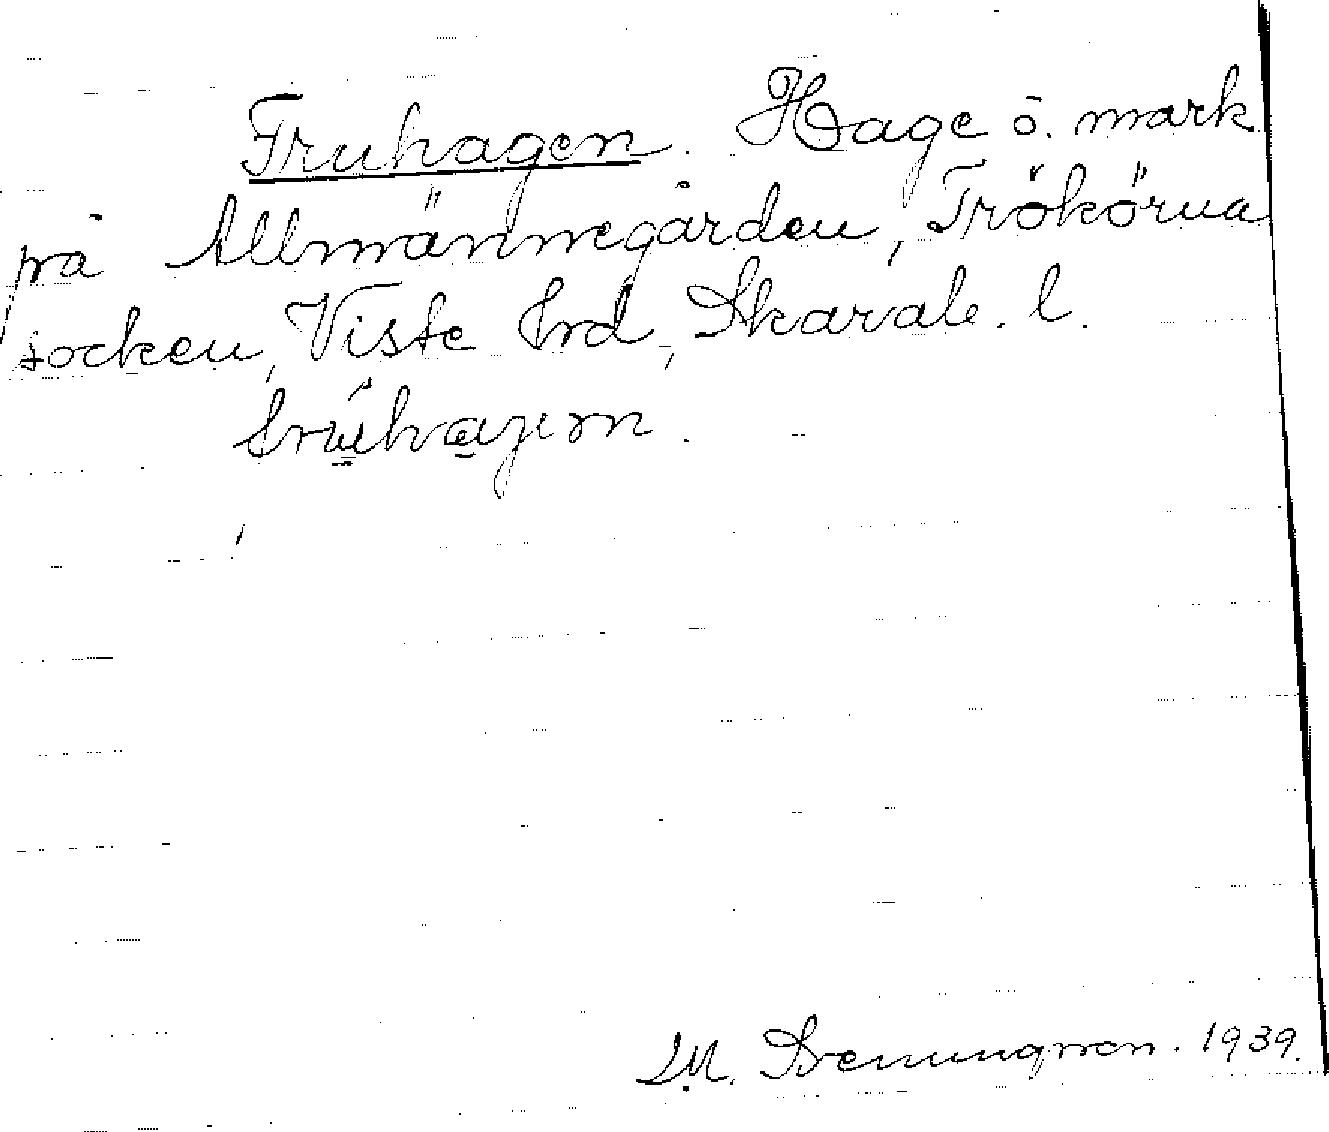 Fruhagen. Hage ö. mark
på Allmännegården, Trökörna
socken, Viste hrd, Skarab. l.
frúhajern.
M. 1939.